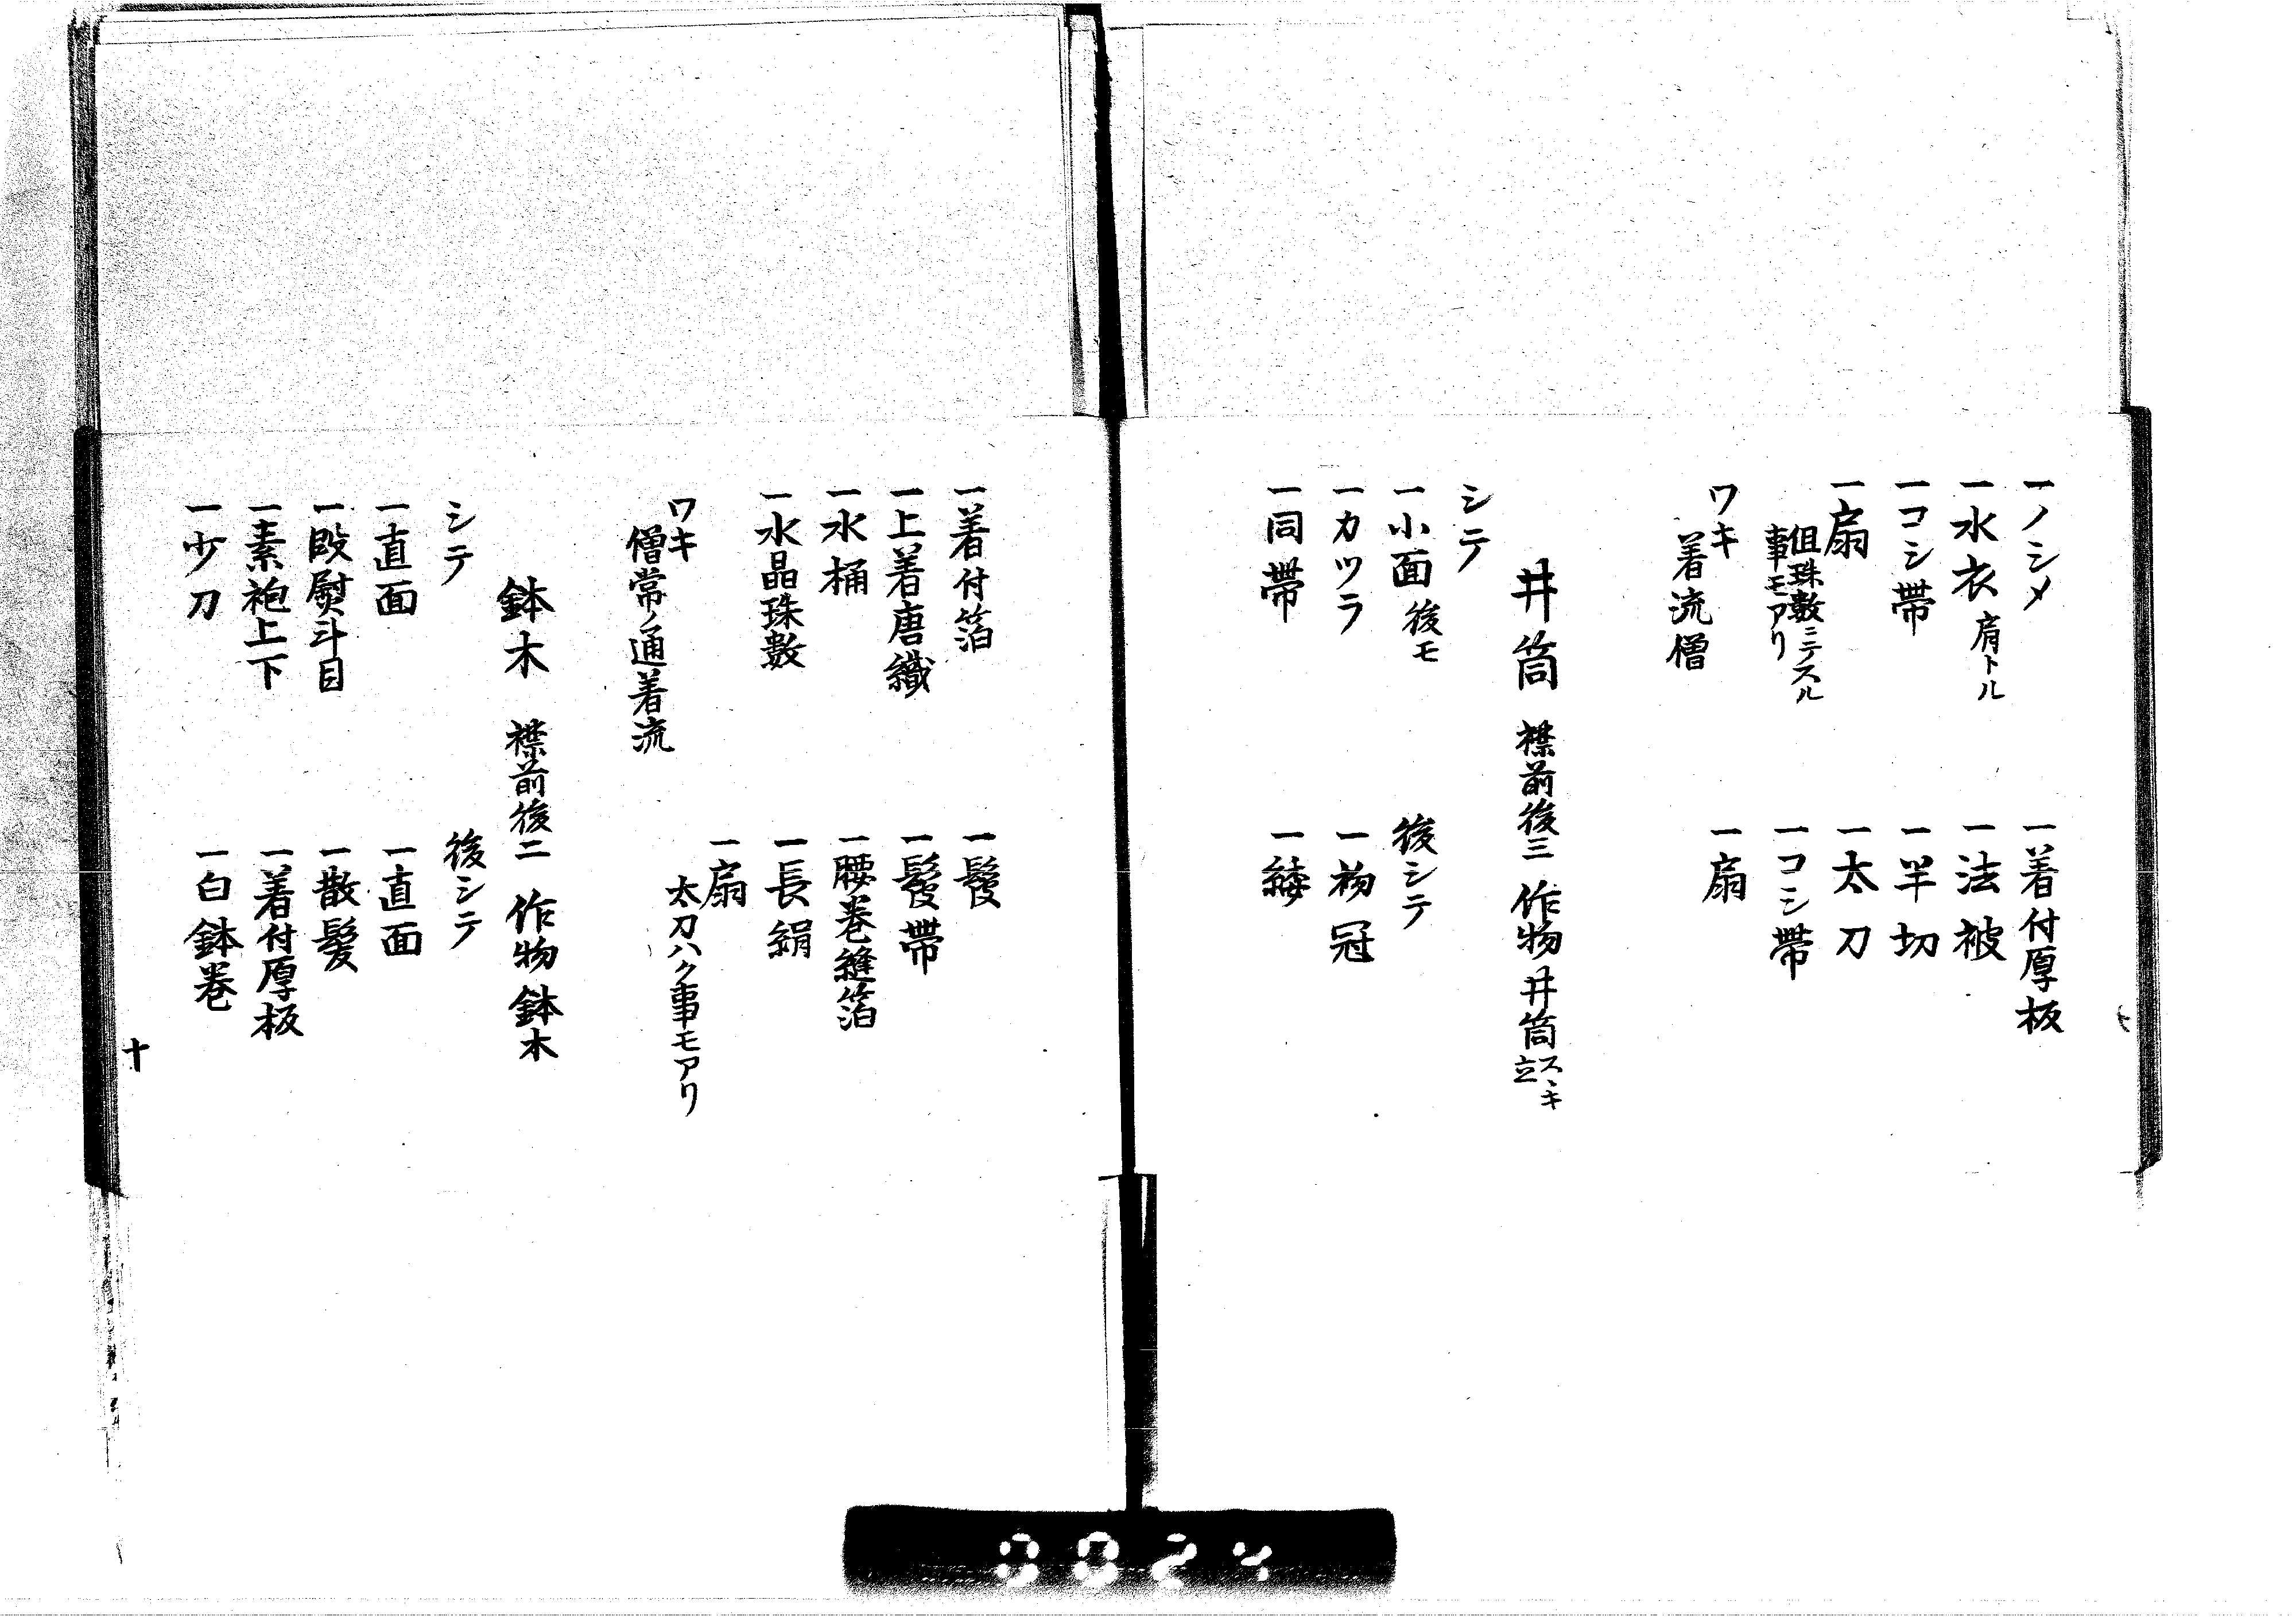 一ノシメ
一水衣 肩トル
一コシ帯
一扇
但珠数ニテスル
事モアリ
ワキ
着流僧
一着付厚板
一法被
一半切
一太刀
一コシ帯
一扇
井筒 襟前後三 作物井筒 スヽキ
立
シテ
一小面 後モ
一カツラ
一同帯
後シテ
一初冠
一緌
一着付箔
一上着唐織
一水桶
一水晶珠数
ワキ
僧常ノ通着流
一鬘
一鬘帯
一腰巻縫箔
一長絹
一扇
太刀ハク事モアリ
鉢木 襟前後二 作物鉢木
シテ
一直面
一段熨斗目
一素袍上下
一少刀
後シテ
一直面
一散髪
一着付厚板
一白鉢巻
十